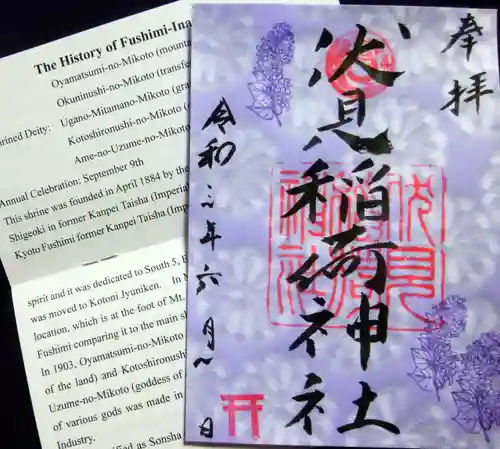 The History of Fushimi-Ina
Oyamatsumi-no-Mikoto (mounta
Okuninushi-no-Mikoto (transfer
rined Deity: Ugano-Mitamano-Mikoto (gra
Kotoshironushi-no-Mikoto (
Ame-no-Uzume-no-Mikoto
Annual Celebration: September 9th
This shrine was founded in April 1884 by the
Shigeoki in former Kanpei Taisha (Imperial
Kyoto Fushimi former Kanpei Taisha (Imp
spirit and it was dedicated to South 5, E
was moved to Kotoni Jyuniken. In M
location, which is at the foot of Mt.
Fushimi comparing it to the main sh
In 1903, Oyamatsumi-no-Mikoto
of the land) and Kotoshironush
Uzume-no-Mikoto (goddess of
of various gods was made in
Industry.
as Sonsha
奉拝
伏見稲荷神社
伏見稲荷神社
令和三年六月
日